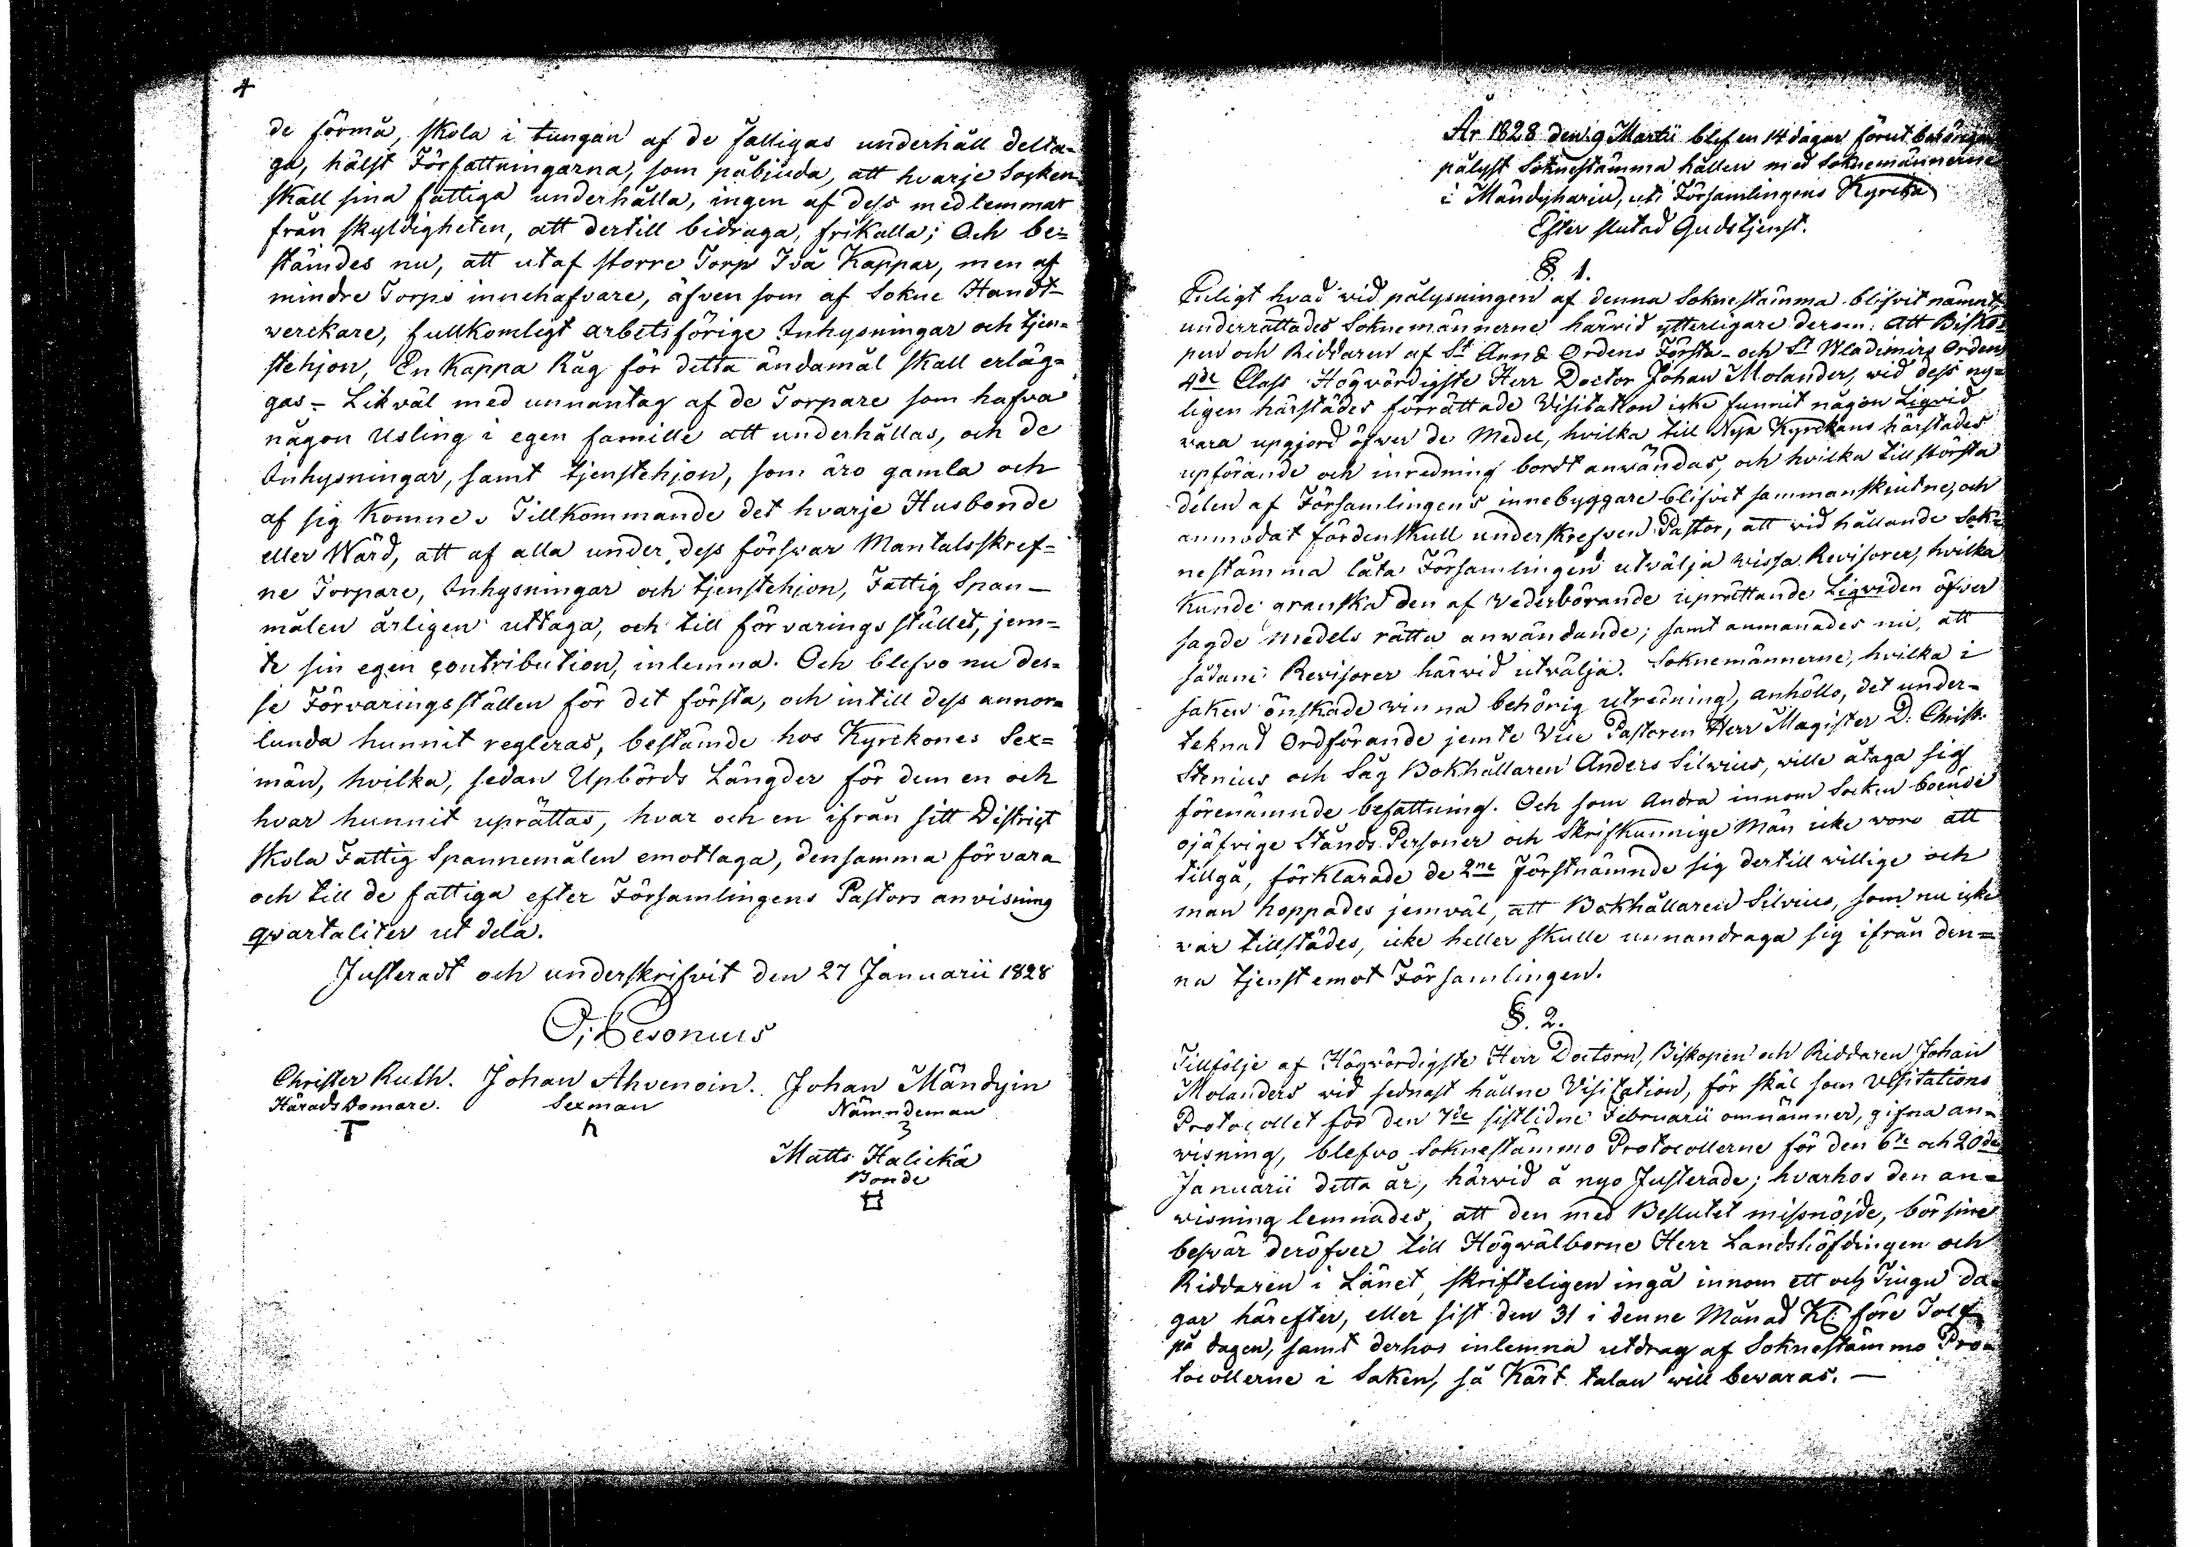 4
de förmå, skola i tungan af de fattigas underhåll delta-
ga, hälst Författningarna, som påbjuda, att hvarje Socken
skall sina fattiga underhålla, ingen af dess medlemmar
från skyldigheten, att dertill bidraga, frikalla; Och be-
stämdes nu, att utaf större Torp Två Kappar, men af
mindre Torps innehafvare, äfven som af Sokne Handt-
werckare, fullkomligt arbetsförige Inhysningar och tjen-
stehjon, En Kappa Råg för detta ändamål skall erläg-
gas - Likväl med unnantag af de Torpare som hafva
någon Usling i egen famille att underhållas, och de
Inhysningar, samt tjenstehjon, som äro gamla och
af sig Komne. Tillkommande det hvarje Husbonde
eller Wärd, att af alla under dess försvar Mantalsskref-
ne Torpare, Inhysningar och tjenstehjon, Fattig Span-
målen årligen uttaga, och till förvarings stället, jem-
te sin egen contribution, inlemna. Och blefvo nu des-
se Förvaringsställen för det första, och intill dess annor-
lunda hunnit regleras, bestämde hos Kyrckones Sex-
män, hvilka, sedan Upbörds Längder för dem en och
hvar hunnit uprättas, hvar och en ifrån sitt District
skola Fattig Spannemålen emottaga, densamma förvara
och till de fattiga efter Församlingens Pastors anvisning
qvartaliter utdela.
Justeradt och underskrifvit den 27 Januarii 1828
Christer Ruth. Johan Ahvenoin. Johan Mändyin
Härads Domare. Sexman Nämndeman
Matts Halickä
Bonde
År 1828 den 9 Martii blef en 14 dagar förut behörigen
pålyst Soknestämma hållen med Soknemännerne
i Mändyhariu, uti Församlingens Kyrcka
Efter slutad Gudstjenst.
§. 1.
Enligt hvad wid pålysningen af denna Soknestämma blifvit nämnt,
underrättades Soknemännerne härwid ytterligare derom: att Bisko-
pen och Riddaren af St Annæ Ordens Första- och St Wladimirs Orden
4de Class Högvördigste Herr Doctor Johan Molander, wid dess ny-
ligen härstädes förrättade Visitation icke funnit någon Liqvid
vara upgjord öfver de Medel, hvilka till Nya Kyrckans härstädes
upförande och inredning bordt anwändas, och hvilka till största
delen af Församlingens innebyggare blifvit sammanskutne, och
anmodat fördenskull underskrefven Pastor, att vid hållande Sok-
nestämma låta Församlingen utvälja vissa Revisorer, hvilka
Kunde granska den af Vederbörande uprättande Liqviden öfver
sagde medels rätta anwändande; samt anmanades nu, att
sådane Revisorer härwid utvälja. Soknemännerne, hvilka i
saken önskade vinna behörig utredning, anhöllo, det under-
teknad Ordförande jemte Vice Pastoren Herr Magister D. Christ.
Stenius och Såg Bokhållaren Anders Silvius, wille åtaga sig
förenämnde befattning. Och som Andra innom Socken boende
ojäfvige Stånds Personer och Skrifkunnige Män icke voro att
tillgå, förklarade de 2ne Förstnämnde sig dertill willige och
man hoppades jemväl, att Bokhållaren Silvius, som nu icke
var tillstädes, icke heller skulle unnandraga sig ifrån den-
na tjenst emot Församlingen.
§. 2.
Tillfölje af Högwördigste Herr Doctorn, Biskopen och Riddaren Johan
Molanders wid sednast hållne Visitation, för skäl som Visitations
Protocollet för den 7de sistlidne Februarii omnämner, gifna an-
visning, blefvo Soknestämmo Protocollerne för den 6te och 20de
Januarii detta år, härwid å nyo Justerade; hvarhos den an-
visning lemnades, att den med Beslutet missnöjde, bör sine
besvär deröfver till Högwälborne Herr Landshöfdingen och
Riddaren i Länet, skrifteligen ingå innom ett och Tiugu da-
gar härefter, eller sist den 31 i denne Månad Kl: före Tolf
på dagen, samt derhos inlemna utdrag af Soknestämmo Pro-
tocollerne i Saken, så Kärt talan will bevaras. —